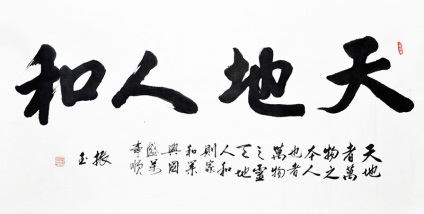 天地人和
天地
者萬
物之
本人
也者
萬物
之靈
天地
人和
則家
和業
興國
盛萬
事順
振
玉